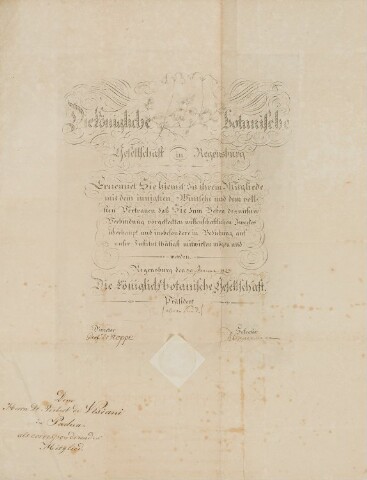 Die Königliche botanische
Gesellschaft in Regensburg
Ernennet Sie hiemit zu ihrem Mitgliede
mit dem innigsten Wunsche und dem vol-
len Vertrauen daß Sie zum Besten der
Verbindung vorgesteckten wissenschaftlichen Zweckes
überhaupt und insbesondere in Beziehung auf
unser Institut thätigst mitwirken mögen und
werden.
Regensburg den
Die königlich botanische Gesellschaft.
Präsident
Director
Hoppe
Dem
Herrn Dr. Robert de Visiani
in Padua
als correspondirendes
Mitglied